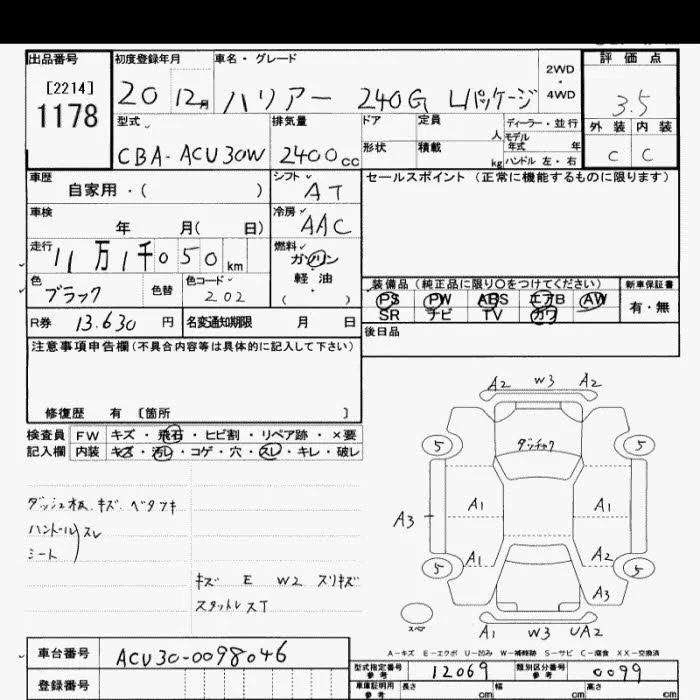 出品番号 初度登録年月 車名・グレード 評価点
[2214]
1178
20 12月 ハリアー 240G Lパッケージ 2WD・4WD 3.5
型式 排気量 ドア 定員 人 ディーラー・並行 外装 内装
CBA-ACU30W 2400cc 形状 積載 kg モデル年式 年 ハンドル 左・右 C C
車歴 自家用・( ) シフト AT セールスポイント(正常に機能するものに限ります)
車検 年 月( 日) 冷房 AAC
走行 11万1千050km 燃料 ガソリン・軽油・( )
色 ブラック 色替 色コード 202
装備品(純正品に限り○をつけてください) 新車保証書
PS PW ABS エアB AW 有・無
SR ナビ TV カワ
R券 13.630円 名変通知期限 月 日 後日品
注意事項申告欄(不具合内容等は具体的に記入して下さい)
修復歴 有 [箇所 ]
検査員記入欄 FW キズ・飛石・ヒビ割・リペア跡・×要
内装 キズ・汚レ・コゲ・穴・スレ・キレ・破レ
ダッシュ板、キズ、ベタツキ
ハンドル スレ
シート
キズ E W2 スリキズ
スタットレスT
A2 W3 A2
5 5
A3 A1 A1
A1 A2
5 5
A3
スペア A1 W3 UA2
A-キズ E-エクボ U-凹み W-補修跡 S-サビ C-腐食 XX-交換済
車台番号 ACU30-0098046
型式指定番号 参考 12069 類別区分番号 参考 0099
登録番号 車庫証明用 参考 長さ cm 幅 cm 高さ cm